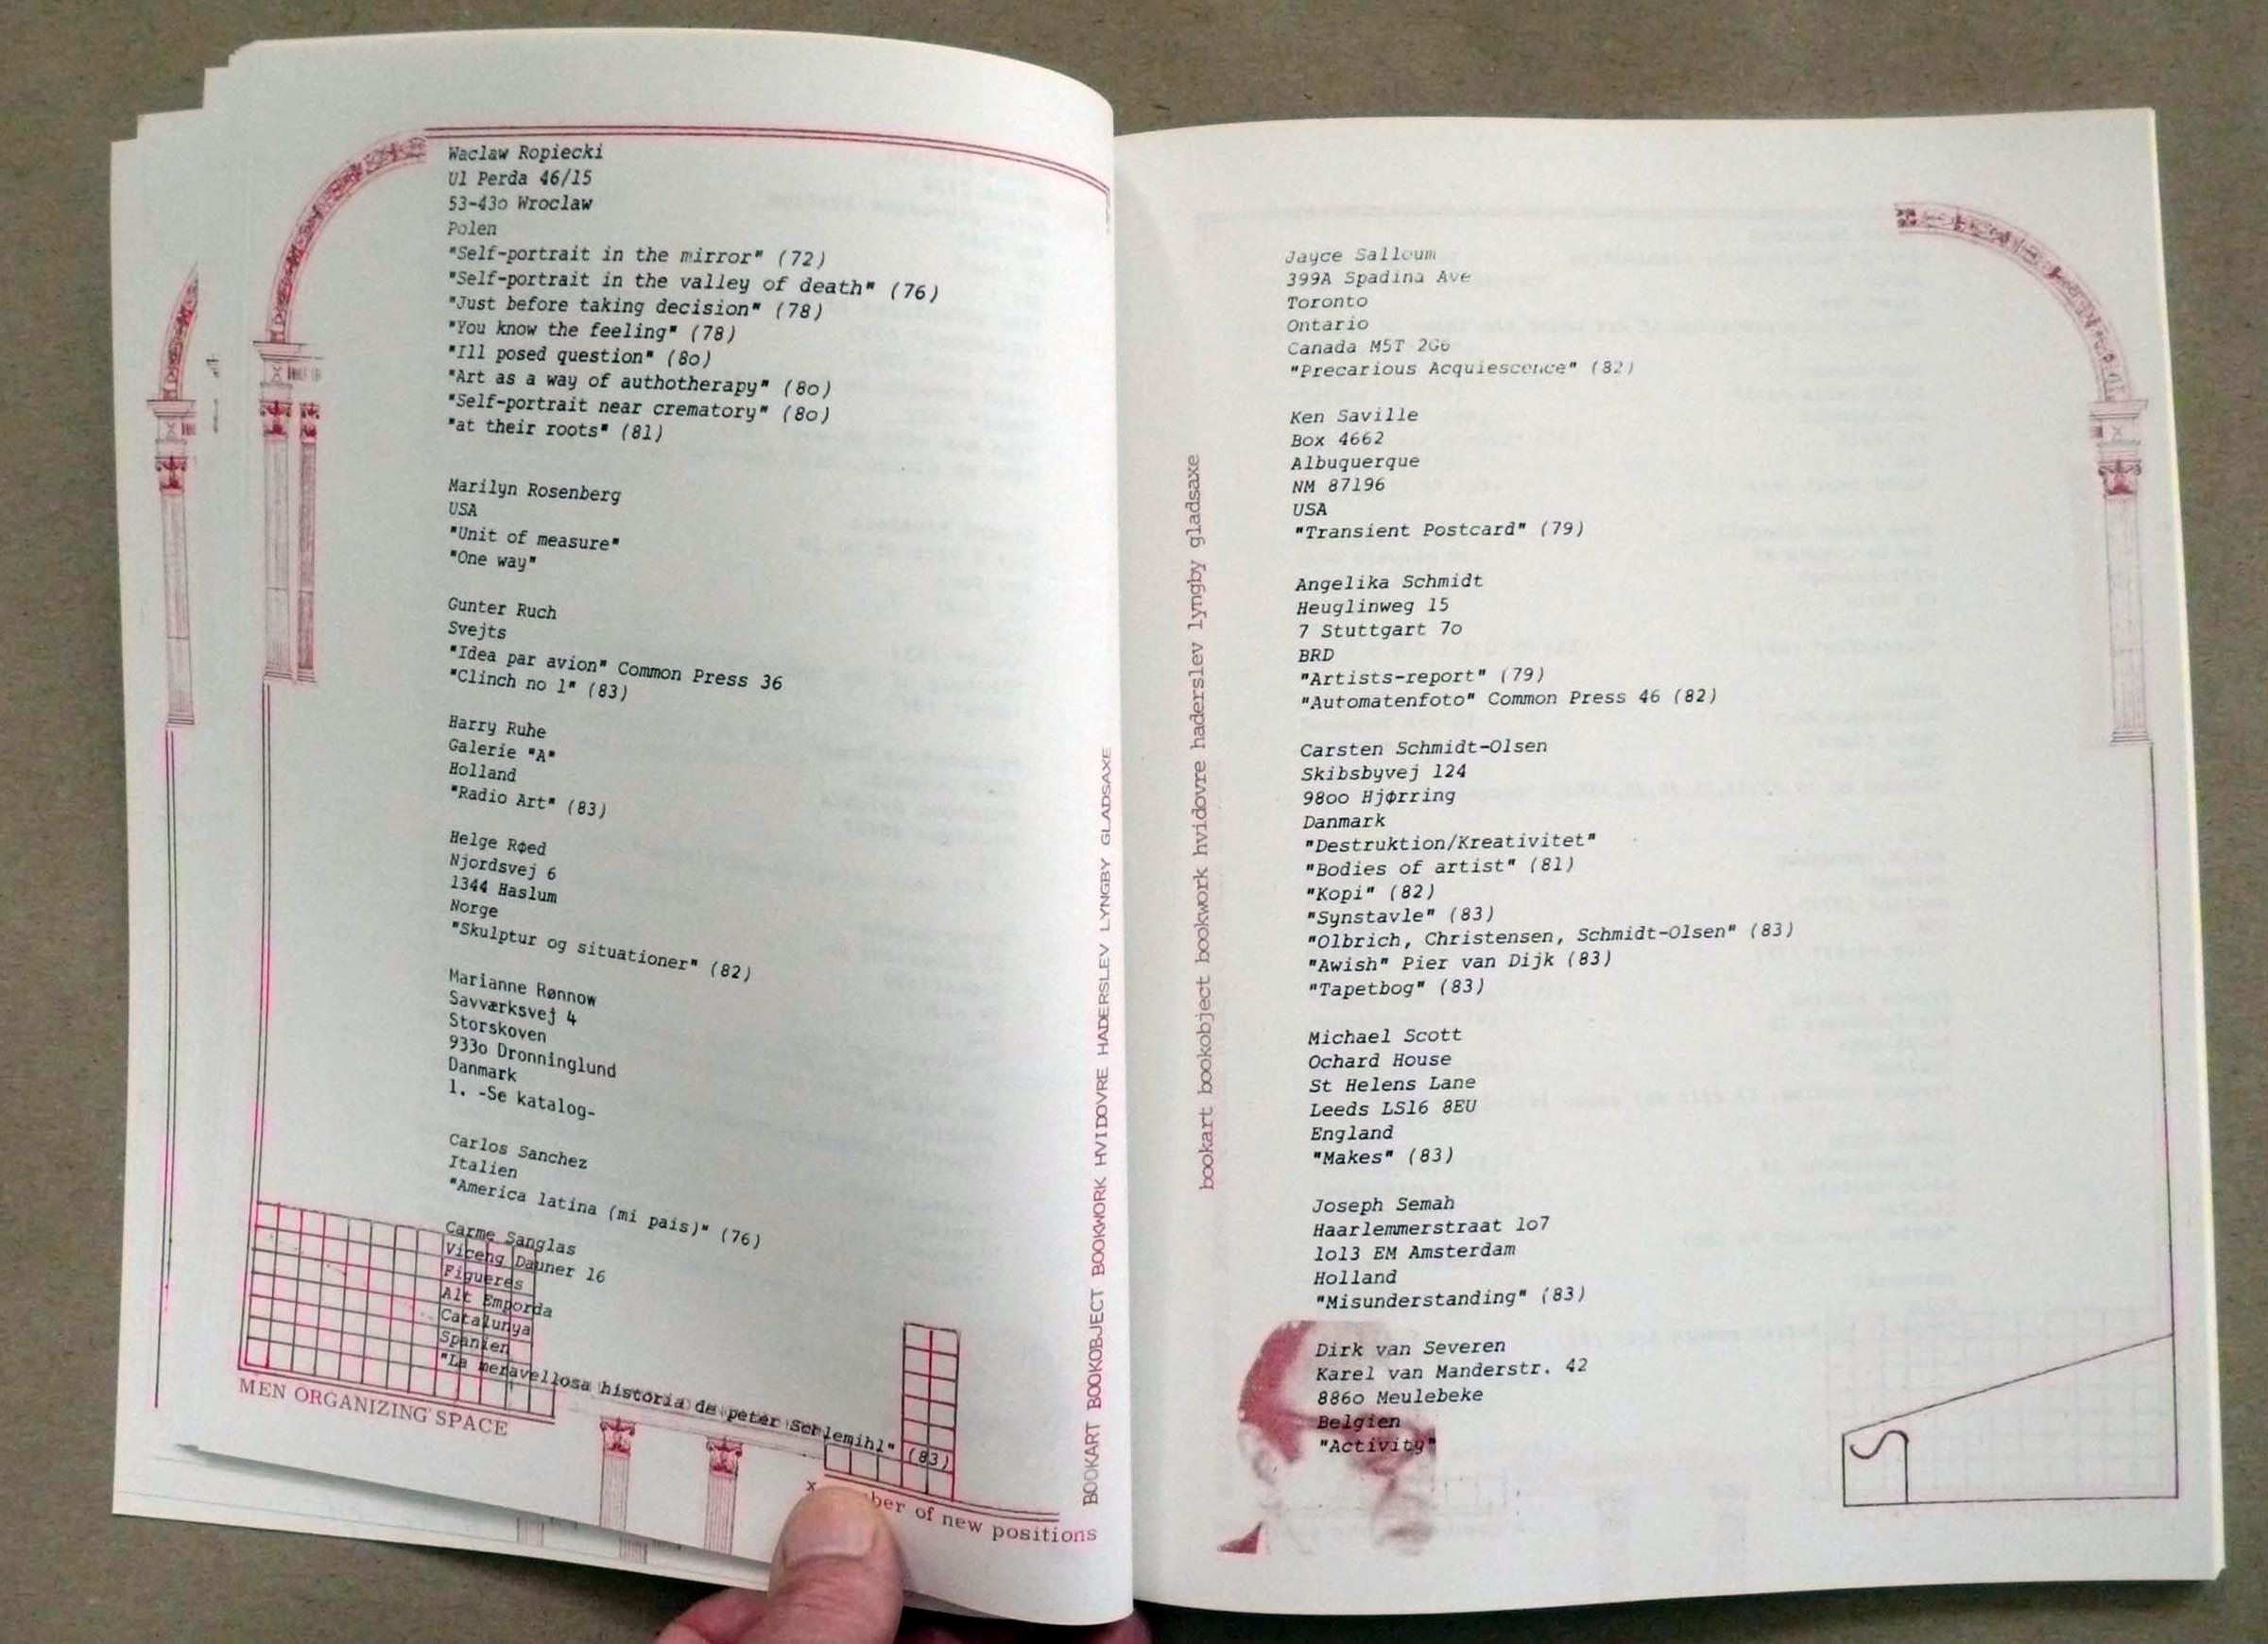 Waclaw Ropiecki
Ul Perda 46/15
53-43o Wroclaw
Polen
"Self-portrait in the mirror" (72)
"Self-portrait in the valley of death" (76)
"Just before taking decision" (78)
"You know the feeling" (78)
"Ill posed question" (8o)
"Art as a way of authotherapy" (8o)
"Self-portrait near crematory" (8o)
"at their roots" (81)
Marilyn Rosenberg
USA
"Unit of measure"
"One way"
Gunter Ruch
Svejts
"Idea par avion" Common Press 36
"Clinch no 1" (83)
Harry Ruhe
Galerie "A"
Holland
"Radio Art" (83)
Helge Røed
Njordsvej 6
1344 Haslum
Norge
"Skulptur og situationer" (82)
Marianne Rønnow
Savværksvej 4
Storskoven
933o Dronninglund
Danmark
1. -Se katalog-
Carlos Sanchez
Italien
"America latina (mi pais)" (76)
Carme Sanglas
Viceng Dauner 16
Figueres
Alt Emporda
Catalunya
Spanien
"La meravellosa historia de peter Schlemihl" (83)
MEN ORGANIZING SPACE
x
of new positions
BOOKART BOOKOBJECT BOOKWORK HVIDOVRE HADERSLEV LYNGBY GLADSAXE
bookart bookobject bookwork hvidovre haderslev lyngby gladsaxe
Jayce Salloum
399A Spadina Ave
Toronto
Ontario
Canada M5T 2G6
"Precarious Acquiescence" (82)
Ken Saville
Box 4662
Albuquerque
NM 87196
USA
"Transient Postcard" (79)
Angelika Schmidt
Heuglinweg 15
7 Stuttgart 7o
BRD
"Artists-report" (79)
"Automatenfoto" Common Press 46 (82)
Carsten Schmidt-Olsen
Skibsbyvej 124
98oo Hjørring
Danmark
"Destruktion/Kreativitet"
"Bodies of artist" (81)
"Kopi" (82)
"Synstavle" (83)
"Olbrich, Christensen, Schmidt-Olsen" (83)
"Awish" Pier van Dijk (83)
"Tapetbog" (83)
Michael Scott
Ochard House
St Helens Lane
Leeds LS16 8EU
England
"Makes" (83)
Joseph Semah
Haarlemmerstraat 1o7
1o13 EM Amsterdam
Holland
"Misunderstanding" (83)
Dirk van Severen
Karel van Manderstr. 42
886o Meulebeke
Belgien
"Activity"
S